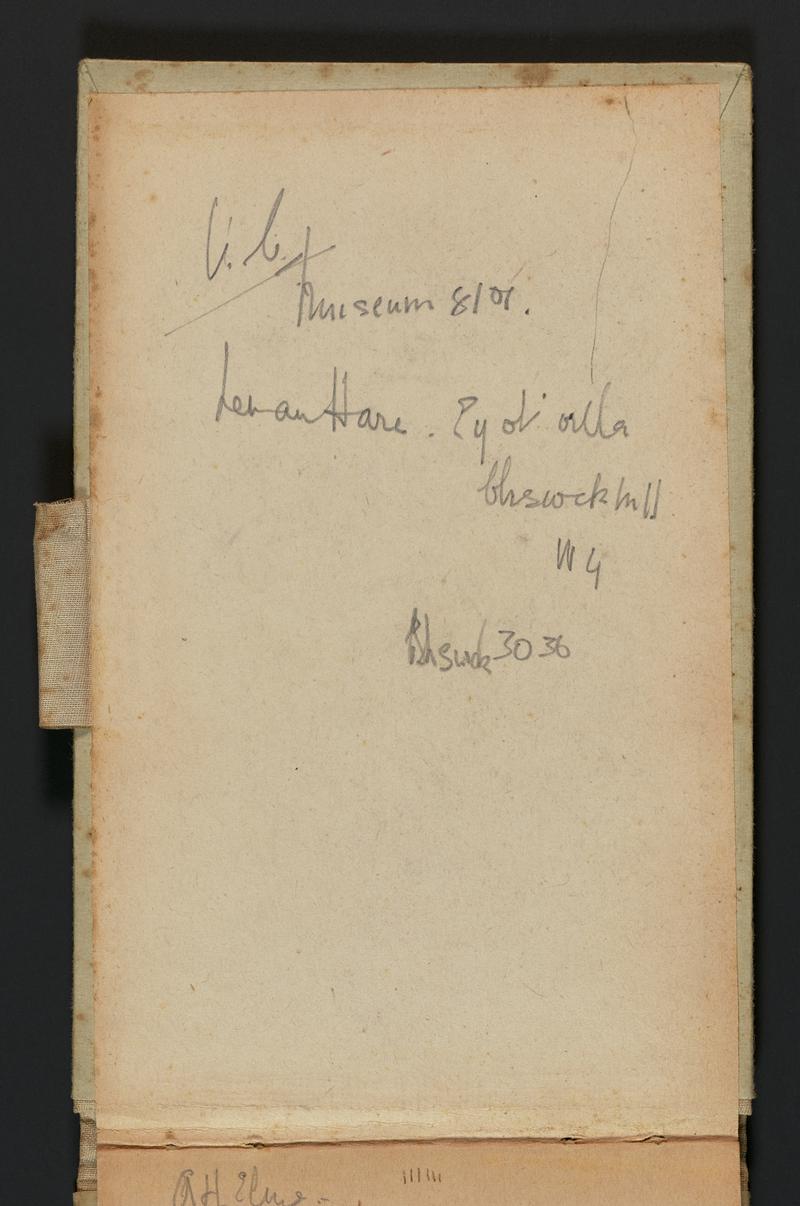 V. C.
Museum 8101.
Leman Hare. Eyot villa
Chiswick Mll
W 4
Chiswick 3036